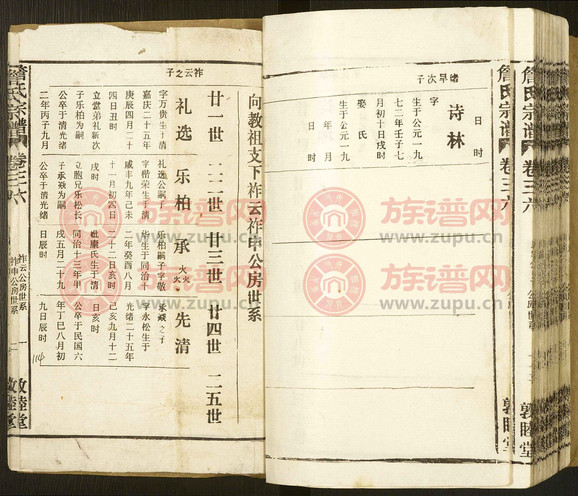 詹氏宗谱
卷三六
敦睦堂
绪早次子
诗林
字
生于公元一九
七二年壬子七
月初十日戌时
娶 氏
生于公元一九
年 月
日 时
日时
向教祖支下祚云祚申公房世系
廿一世
廿三世
廿四世
二五世
祚云之子
礼选
字万贵生于清
嘉庆二十五年
庚辰四月二十
四日丑时
立堂弟礼新次
子乐柏为嗣
公卒于清光绪
二年丙子九月
乐柏
礼选公嗣子
字楷荣生于清
咸丰九年己未
十一月初四日
戌时
立胞兄乐松长
子承焱为嗣
公卒于清光绪
日辰时
承
乐柏嗣子字敬
华生于同治十
二年癸酉八月
二十二日亥时
妣康氏生于清
同治十三年甲
戌五月二十九
日辰时
先清
承焱之子
字永松生于
光绪二十五年
己亥九月十二
日亥时
公卒于民国六
年丁巳八月初
九日辰时
詹氏宗谱
卷三六
祚云公房世系
祚申公房世系
敦睦堂
族谱网
www.zupu.cn
族谱网
www.zupu.cn
族谱网
www.zupu.cn
族谱网
www.zupu.cn